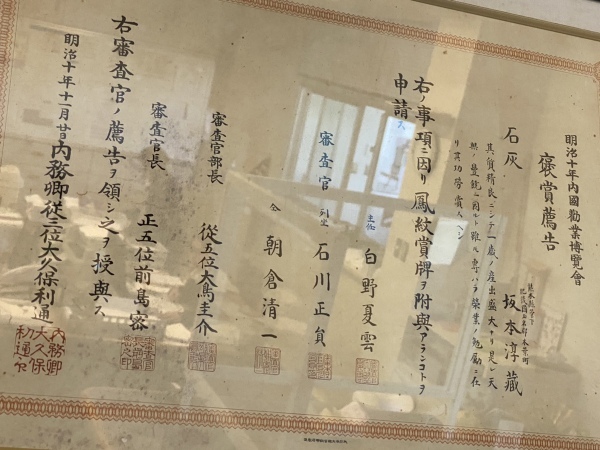 明治十年內國勸業博覽會
褒賞薦告
石灰
坂本淳藏
其質精良ニシテ一歲ノ産出盛大ナリ是レ天
與ノ豐饒ニ因ルト雖ル專ハラ築業ノ勉勵ニ在
リ其功勞賞スヘシ
右ノ事項ニ因リ鳳紋賞牌ヲ附與アランコトヲ
申請ス
審查官
主任
白野夏雲
列坐
石川正貟
仝
朝倉清一
審查官部長
從五位大鳥圭介
審查官長
正五位前島密
右審查官ノ薦告ヲ領シ之ヲ授與ス
明治十年十一月廿日
內務卿從三位大久保利通
內務卿
大久保
利通印